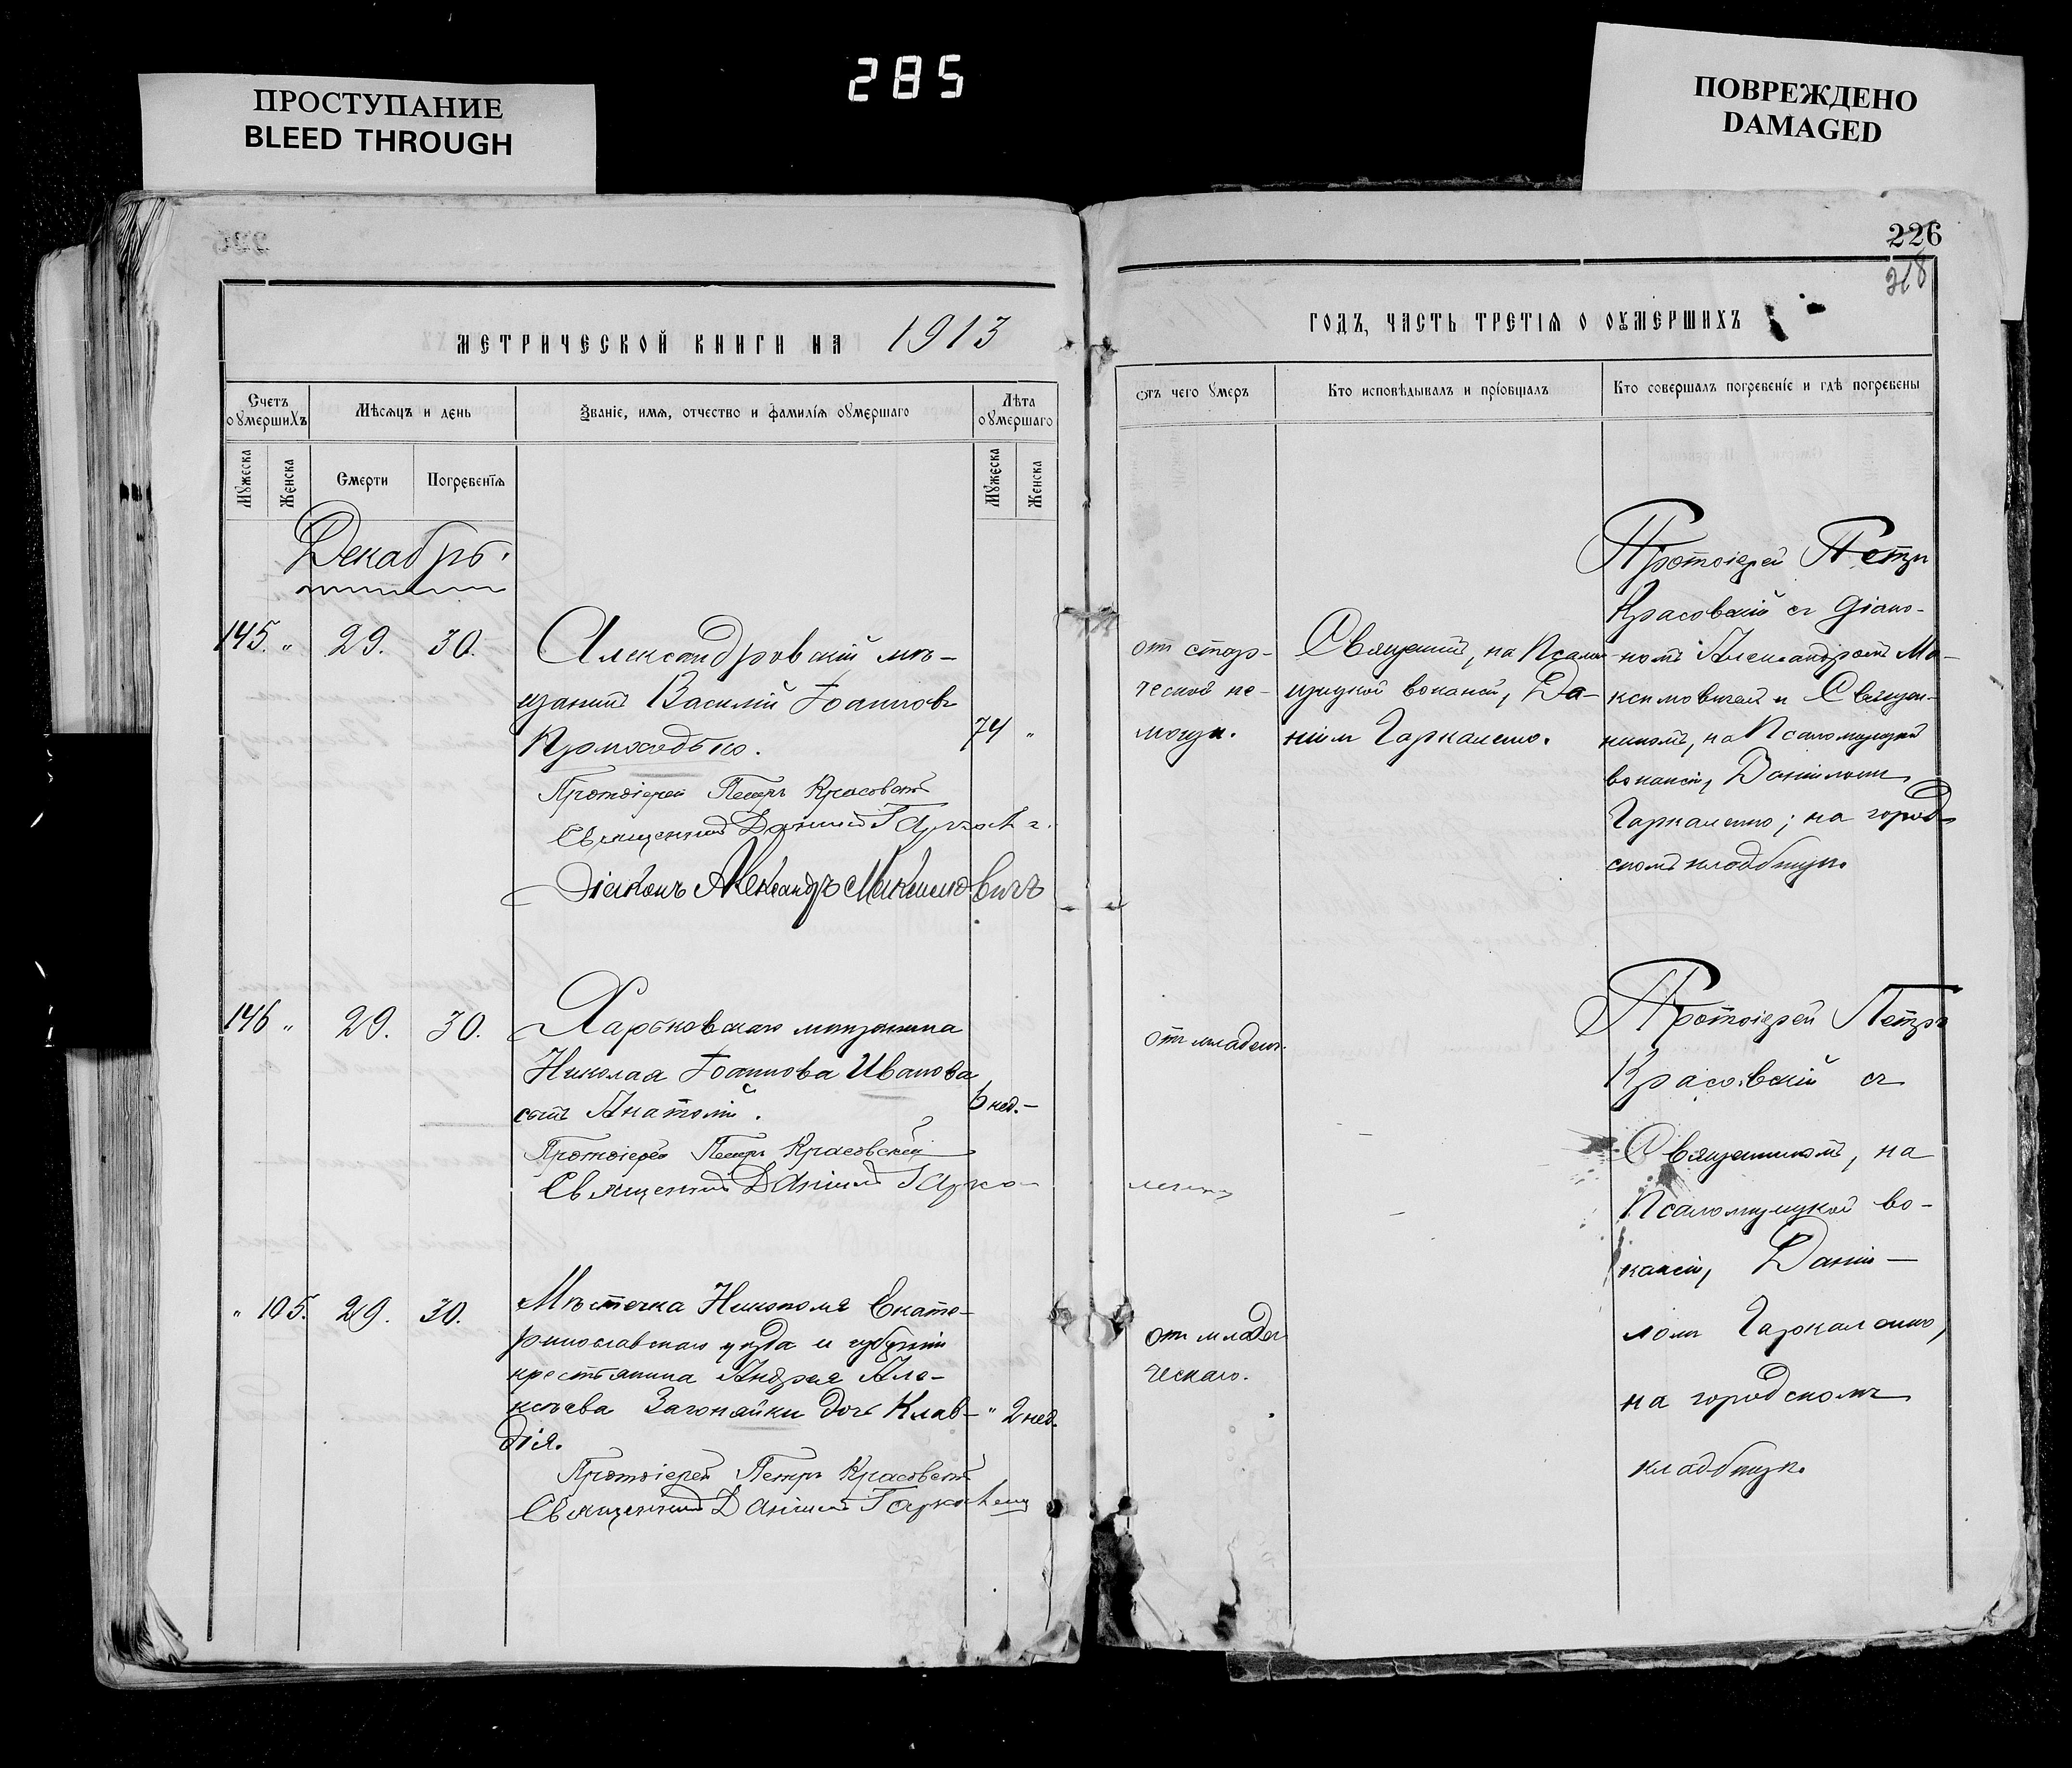 285
ПРОСТУПАНИЕ
BLEED THROUGH
ПОВРЕЖДЕНО
DAMAGED
226
318
МЕТРИЧЕСКОЙ КНИГИ НА 1913
ГОДЪ, ЧАСТЬ ТРЕТІѦ О ОУМЕРШИХЪ
Счетъ оумершихъ
Мѣсѧцъ и день
Званіе, имѧ, отчество и фамиліѧ оумершаго
Лѣта оумершаго
Мужеска
Женска
Смерти
Погребеніѧ
Мужеска
Женска
Отъ чего умеръ
Кто исповѣдывалъ и пріобщалъ
Кто совершалъ погребеніе и гдѣ погребены
Декабрь.
145. "
29.
30.
Александровскій мѣ-
щанинъ Василій Іоанновъ
74 "
Протоіерей Петръ Красовскій
Священникъ Даниилъ Гаркал
Діаконъ Александръ Максимовичъ
от стар-
ческой не-
мощи.
Священникъ, на Псалом
щицкой вакансіи, Да-
ніилъ Гаркаленко.
Протоіерей Петръ
Красовскій съ Діако-
номъ Александромъ Ма-
ксимовичемъ и Священ-
никомъ, на Псаломщицкой
вакансіи, Даніиломъ
Гаркаленко; на город-
скомъ кладбищѣ.
146 "
29.
30.
Харьковскаго мѣщанина
Николая Іоаннова Иванова
сынъ Анатолій.
6 нед. –
Протоіерей Петръ Красовскій
Священникъ Даниилъ Гарка-
ленко
от младенч.
Протоіерей Петръ
Красовскій съ
Священникомъ, на
Псаломщицкой ва-
кансіи, Даніи-
ломъ Гаркаленко,
на городскомъ
кладбищѣ.
" 105.
29.
30.
Мѣстечка Никополя Екате-
ринославскаго уѣзда и губерніи
крестьянина Андрея Але-
ксѣева Загонайки дочь Клав-
дія.
" 2 нед.
Протоіерей Петръ Красовскій
Священникъ Даниилъ Гаркаленко
от младен
ческаго.